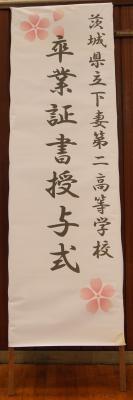 茨城県立下妻第二高等学校
卒業証書授与式